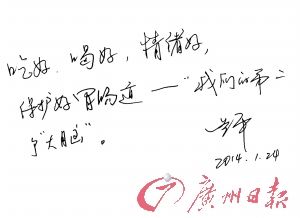 吃好、喝好，情绪好，
保护好胃肠道——“我们的第二
个“大脑”。
2014.1.24
广州日报